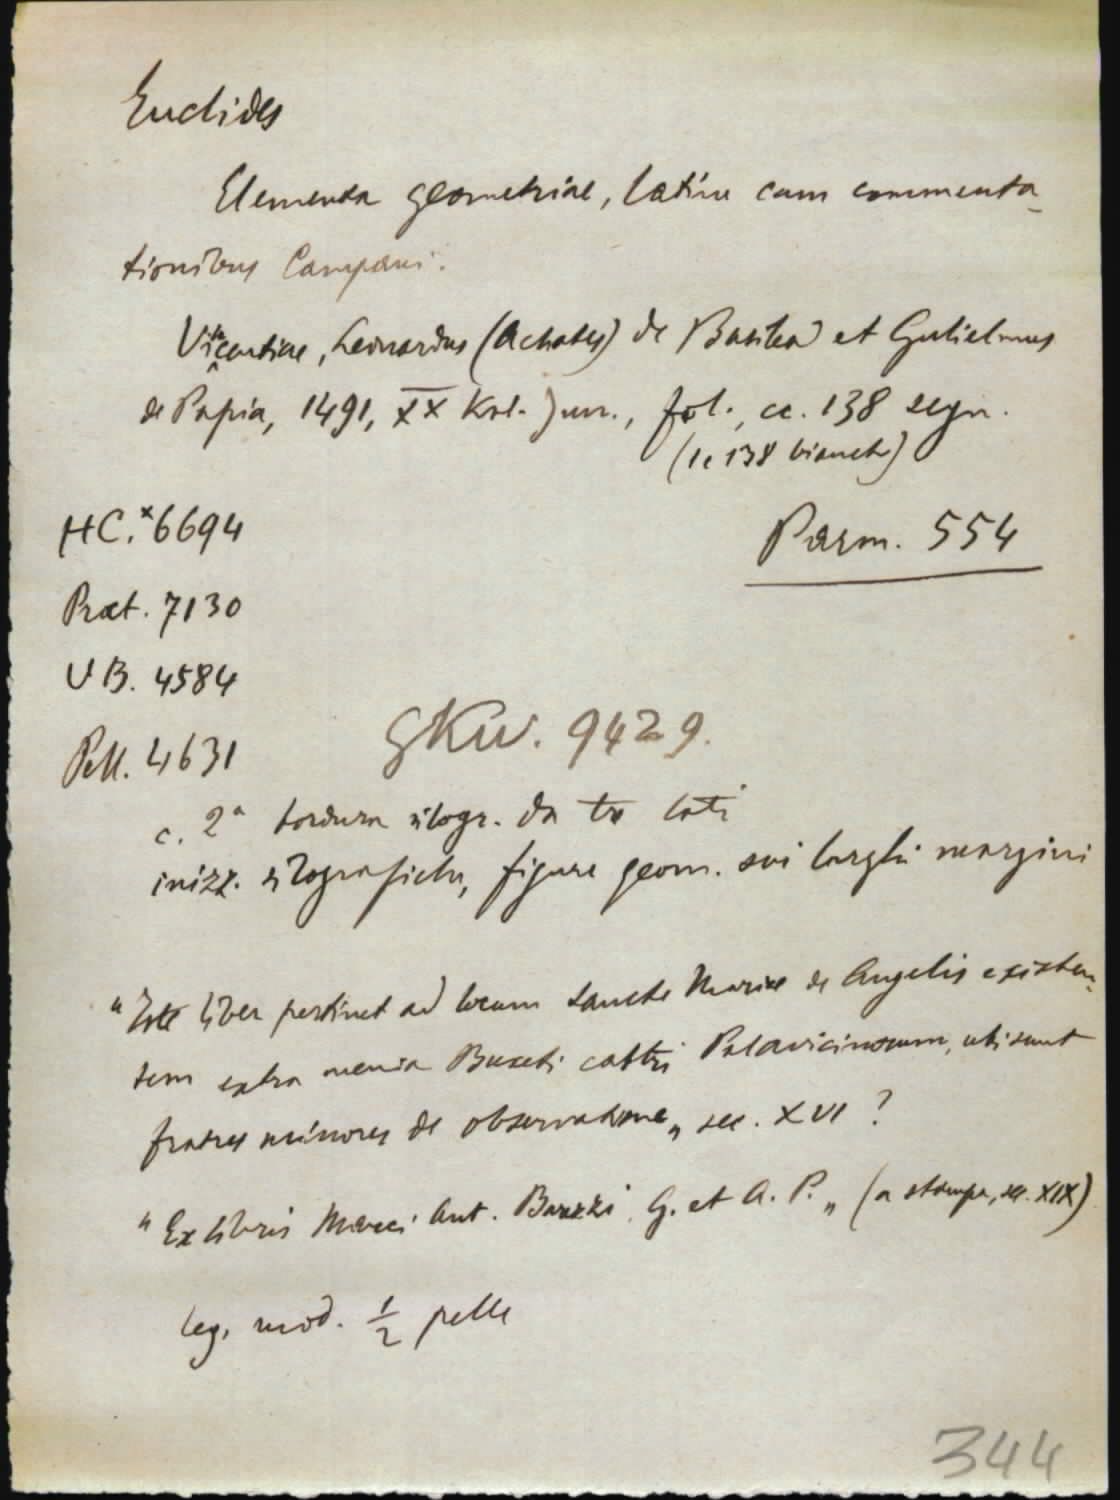 Euclides
Elementa geometriae, latine cum commenta-
tionibus Campani.
Vincentiae, Leonardus (Achates) de Basilea et Gulielmus
de Papia, 1491, XX Kal. Jun., fol., cc. 138 segn.
(le 138 bianch)
HC.*6694
Parm. 554
Proct. 7130
VB. 4584
GKW. 9429.
Pell. 4631
c. 2ª bordura silogr. da tre lati
inizz. silografiche, figure geom. sui larghi margini
"Iste liber pertinet ad locum sancte Marie de Angelis existen-
tem extra menia Buxeti castri Palavicinorum, ubi sunt
fratres minores de observatione„ sec. XVI ?
"Ex libris Marci Ant. Bauzzi G. et A. P.„ (a stampa, sec. XIX)
leg. mod. 1/2 pelle
344